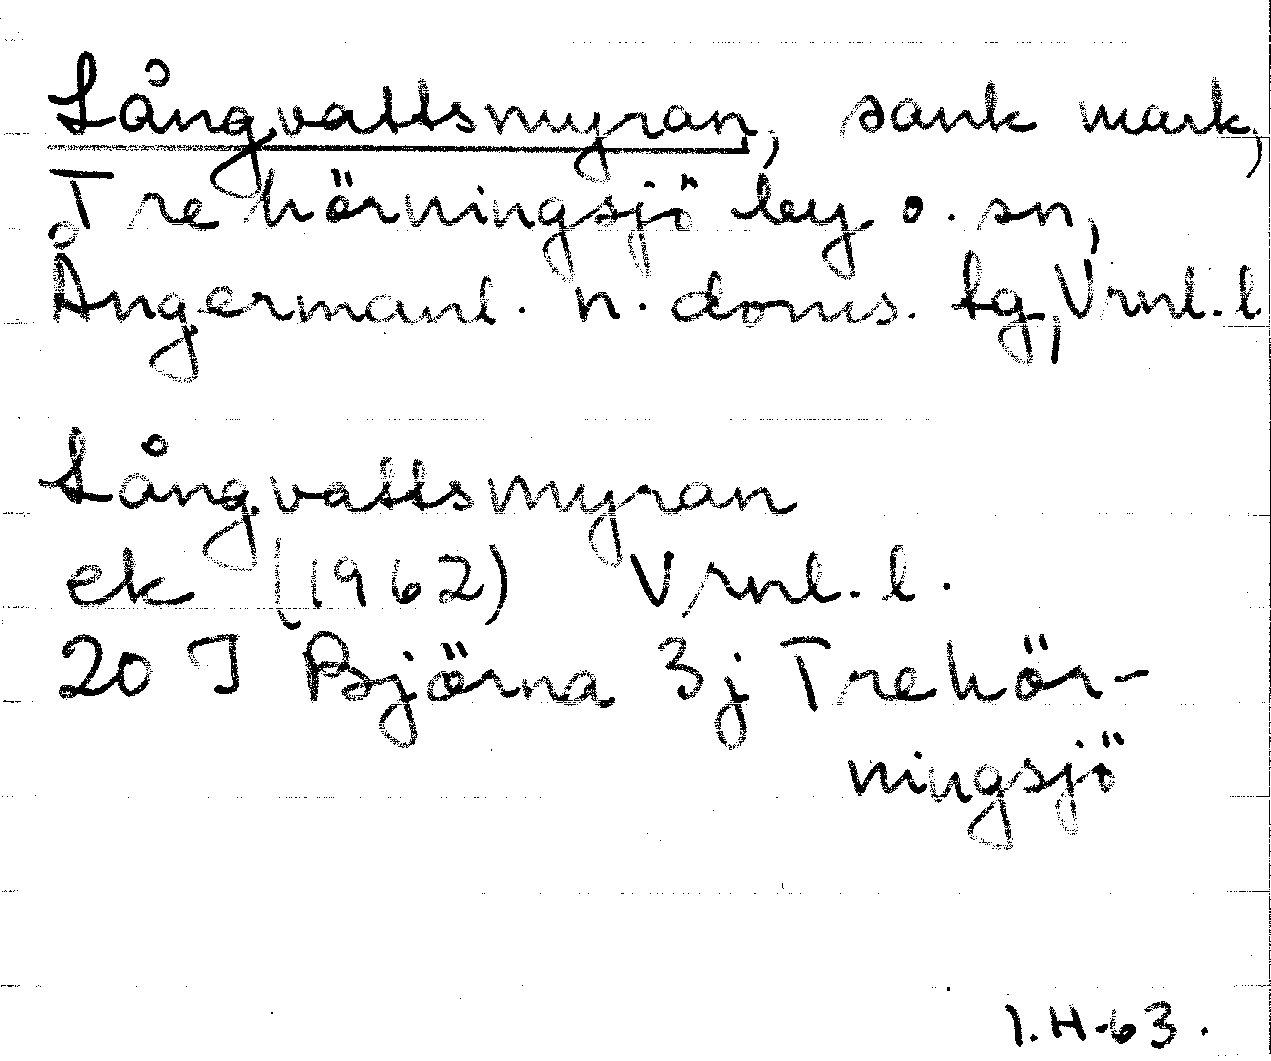 Långvattsmyran, sank mark,
Trehörningsjö by o. sn,
Ångermanl. n. doms. tg, Vrnl. l
Långvattsmyran
ek (1962) Vrnl. l.
20 J Björna 3j Trehör-
ningsjö
I.H-63.